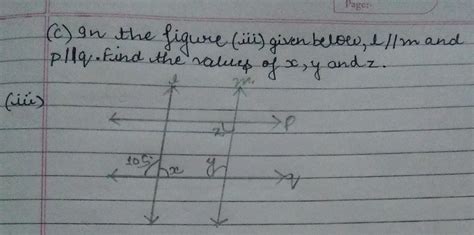 Page:
(C) In the figure (iii) given below, l//m and
p||q. Find the values of x, y and z.
(iii)
l
m
p
z
105
x
y
q